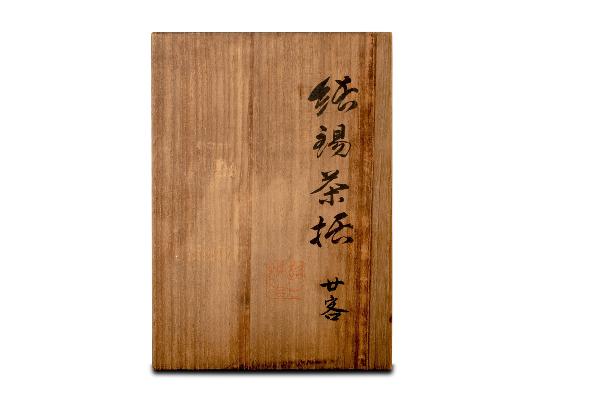 純錫茶托 廿客